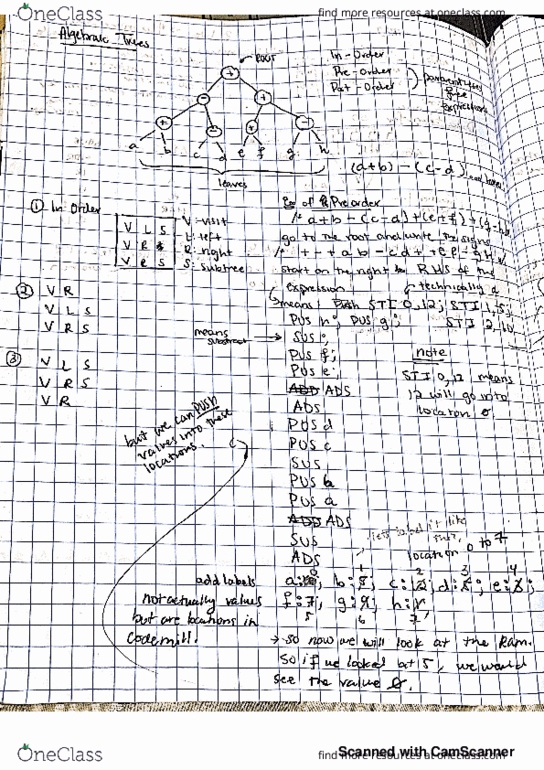 OneClass
find more resources at oneclass.com
Algebraic Trees
ROOT
In-Order
Pre-Order
Post-Order
expressions
a b c d e f g h
leaves
(a+b) - (c-d)
① In Order
V L S
V R S
V R S
V: visit
L: left
R: right
S: subtree
Ex of Preorder
go to the root and write the signs
start on the right RHS of the
expression
technically a
means push STI 0,12; STI 1,5;
PUS h; PUS g; STI 2,10
② V R
V L S
V R S
means subtract → SUS;
PUS f;
PUS e;
ADD ADS
ADS
PUS d
PUS c
SUS
PUS b
PUS a
ADD ADS
SUS
ADS
note
STI 0,12 means
12 will go into
location 0
③ V L S
V R S
V R
but we can PUSH
values into these
locations.
location 0 to 7
add labels
not actually values
but are locations in
Codemill.
→ so now we will look at the Ram.
So if we looked at 5, we would
see the value 0.
Scanned with CamScanner
OneClass
find more resources at oneclass.com